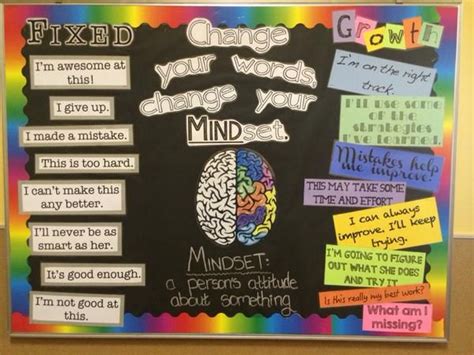 FIXED
I'm awesome at
this!
I give up.
I made a mistake.
This is too hard.
I can't make this
any better.
I'll never be as
smart as her.
It's good enough.
I'm not good at
this.
Change
your words,
change your
MINDset.
MINDSET:
a persons attitude
about something
Growth
I'm on the right
track.
I'll use some
of the
strategies
I've learned.
Mistakes help
me improve!
THIS MAY TAKE SOME
TIME AND EFFORT
I can always
improve, I'll keep
trying.
I'M GOING TO FIGURE
OUT WHAT SHE DOES
AND TRY IT
Is this really my best work?
What am I
missing?